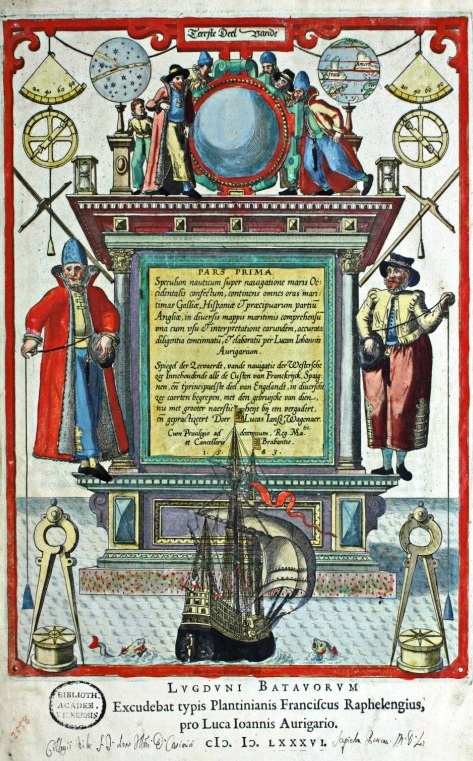 Teerste Deel Vande
PARS PRIMA
Speculum nauticum super navigatione maris Oc⸗
cidentalis confectum, continens omnes oras mari⸗
timas Galliæ, Hispaniæ & præcipuarum partiũ
Angliæ, in diversis mappis maritimis comprehensũ
una cum usu & interpretatione earundem, accurata
diligentia concinnatũ, & elaboratũ per Lucam Iohannis
Aurigarium.
Spiegel der Zeevaerdt, vande navigatie der Westersche
zee Innehoudende alle de Custen van Franckrijck, Spaig⸗
nen, eñ t'principaelste deel van Engelandt, in diversche
zee caerten begrepen, met den gebruijcke van dien,
nu met grooter naersticheijt bij een vergadert,
eñ gepractizeert Doer Lucas Iansz Wagenaer
Cum Privilegio ad decennium, Reg. Ma.tis
et Cancellarij Brabantie.
1583.
LVGDVNI BATAVORVM
Excudebat typis Plantinianis Franciscus Raphelengius,
pro Luca Ioannis Aurigario.
cIↃ. IↃ. LXXXVI.
BIBLIOTH.
ACADEM.